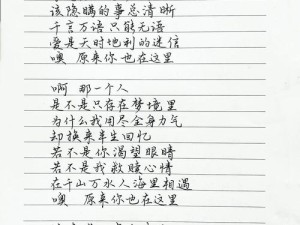 该隐瞒的事总清晰
千言万语只能无语
爱是天时地利的迷信
噢 原来你也在这里
啊 那一个人
是不是只存在梦境里
为什么我用尽全身力气
却换来半生回忆
若不是你渴望眼睛
若不是我救赎心情
在千山万水人海里相遇
噢 原来你也在这里